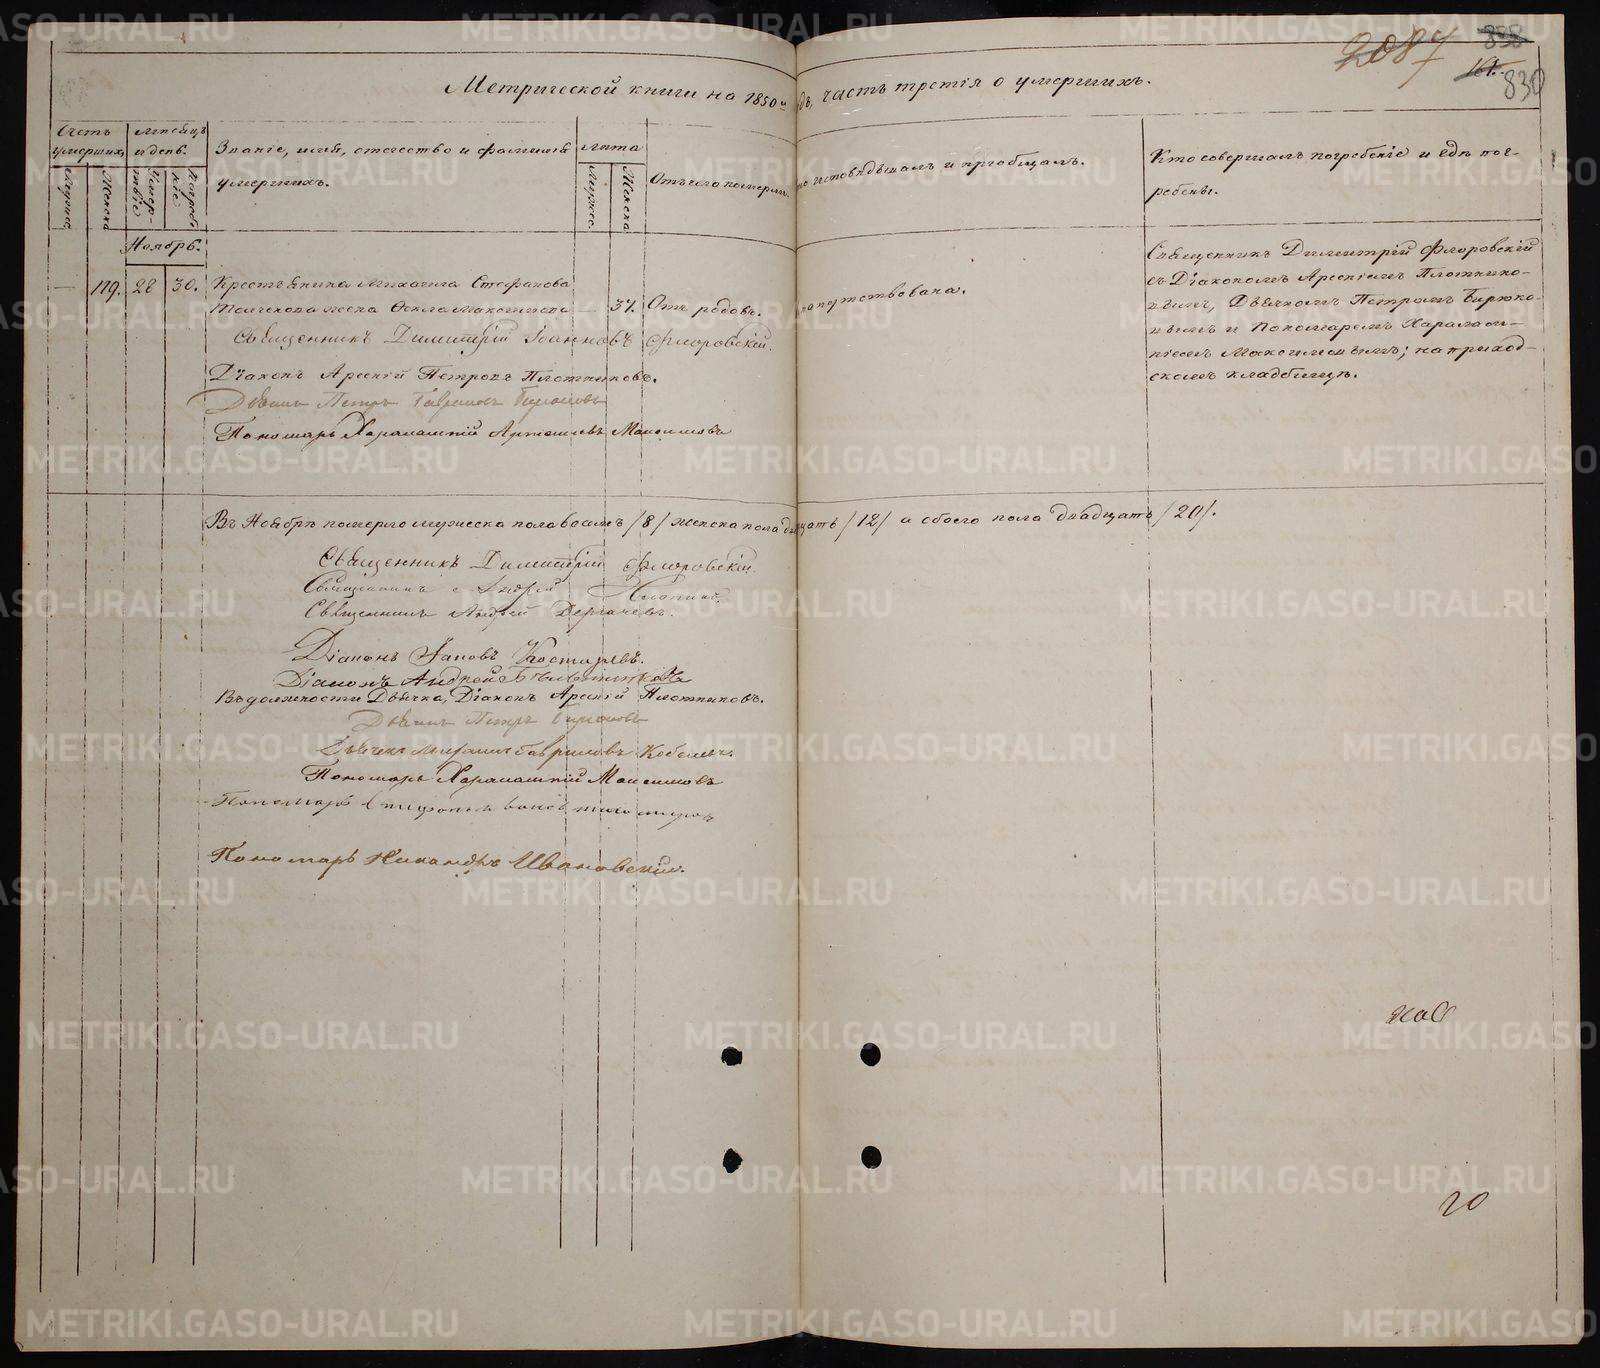 2087
838
161.
830
Метрической книги на 1850й годъ, часть третія о умершихъ.
Счетъ умершихъ.
Мужеска
Женска
Мѣсяцъ и день.
Смертвіе
Погребеніе
Званіе, имя, отечество и фамилія
умершихъ.
Лѣта
Мужес.
Женска
Отъ чего померли.
Кто исповѣдывалъ и пріобщалъ.
Кто совершалъ погребеніе и гдѣ погребены.
Ноябрь.
— 119. 28 30. Крестьянина Михаила Стефанова
жена Фекла Максимова — 37. Отъ родовъ. напутствована.
Священникъ Димитрій Флоровскій
съ Діакономъ Арсеніемъ Плотнико-
вымъ, Дьячкомъ Петромъ Бирюко-
вымъ и Пономаремъ Харалам-
піемъ Максимовымъ; на приход-
скомъ кладбищѣ.
Священникъ Димитрій Іоанновъ Флоровскій.
Діаконъ Арсеній Петровъ Плотниковъ.
Дьячекъ Петръ Гавриловъ Бирюковъ
Пономарь Харалампій Артемьевъ Максимовъ
Въ Ноябрѣ померло мужеска пола восемь /8/ женска пола двѣнадцать /12/ а обоего пола двадцать /20/.
Священникъ Димитрій Флоровскій
Священникъ Андрей
Священникъ Андрей Дергачевъ.
Діаконъ Іаковъ Костаревъ.
Діаконъ Андрей
Въ должности Дьячка, Діаконъ Арсеній Плотниковъ.
Дьячекъ Петръ Бирюковъ
Дьячекъ Михаилъ Гавриловъ
Пономарь Харалампій Максимовъ
Пономарь
Пономарь Никандръ Ивановскій.
20
METRIKI.GASO-URAL.RU